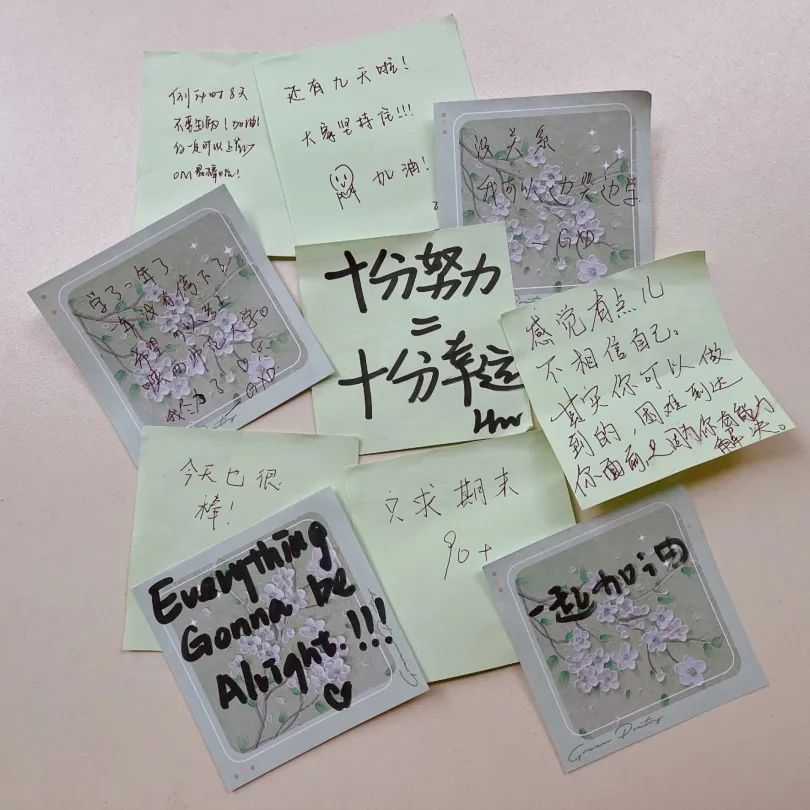 倒计时8天
不要生病！加油！
你一定可以上岸
还有九天啦！
大家坚持住!!!
加油！
没关系
我可以边哭边学
— GXD
学了一年了
一年没有停下了
希望可以考上
大学。
GXD
十分努力
=
十分幸运
感觉有点儿
不相信自己。
其实你可以做
到的，困难到达
你面前是因为你有能力
解决。
今天也很
棒！
只求期末
90+
Everything
Gonna be
Alright.!!!
一起加油